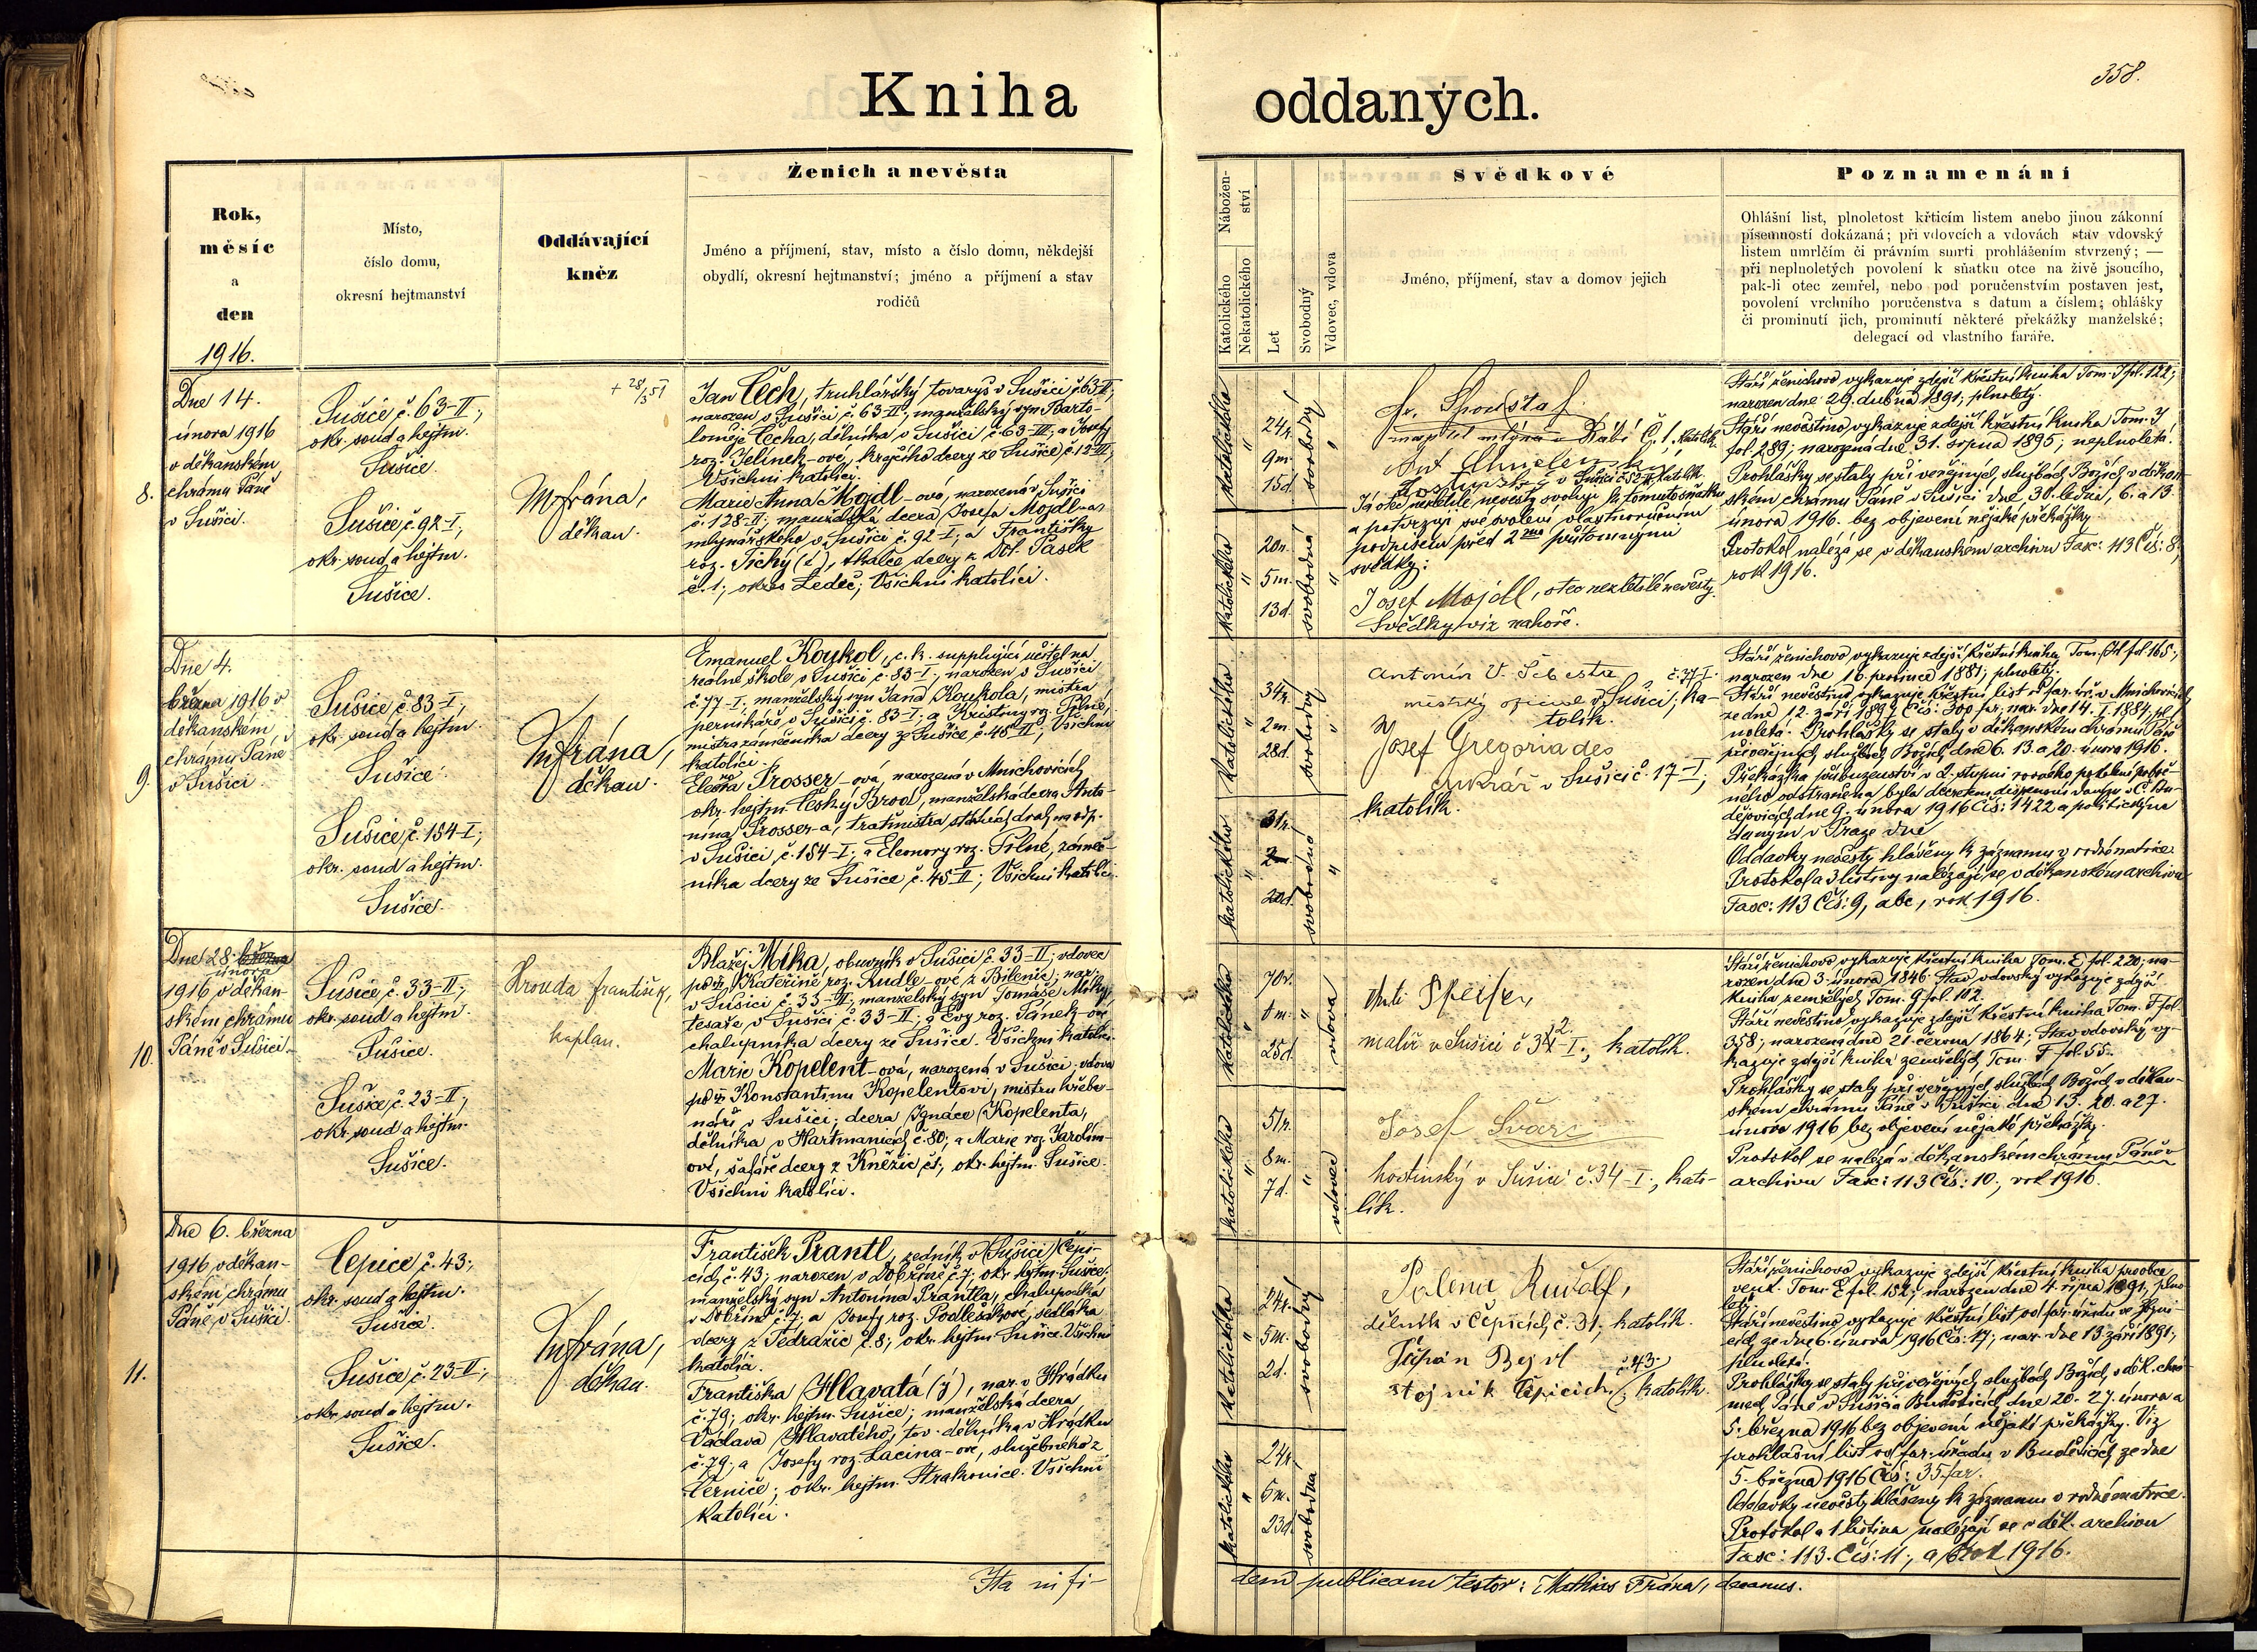 358.
Kniha oddaných.
Rok,
měsíc
a
den
1916.
Místo,
číslo domu,
okresní hejtmanství
Oddávající
kněz
Ženich a nevěsta
Jméno a příjmení, stav, místo a číslo domu, někdejší
obydlí, okresní hejtmanství; jméno a příjmení a stav
rodičů
Nábožen-
ství
Katolického
Nekatolického
Let
Svobodný
Vdovec, vdova
Svědkové
Jméno, příjmení, stav a domov jejich
Poznamenání
Ohlášní list, plnoletost křticím listem anebo jinou zákonní
písemností dokázaná; při vdovcích a vdovách stav vdovský
listem umrlčím či právním smrti prohlášením stvrzený; —
při neplnoletých povolení k sňatku otce na živě jsoucího,
pak-li otec zemřel, nebo pod poručenstvím postaven jest,
povolení vrchního poručenstva s datum a číslem; ohlášky
či prominutí jich, prominutí některé překážky manželské;
delegací od vlastního faráře.
8.
Dne 14.
února 1916
v děkanském
chrámu Páně
v Sušici.
Sušice, č. 63-II;
okr. soud a hejtm.
Sušice.
Sušice, č. 92-I;
okr. soud a hejtm.
Sušice.
Mfrána,
děkan.
+ 28/3 51
Jan Čech, truhlářský tovaryš v Sušici č. 63-II;
narozen v Sušici č. 63-II; manželský syn Barto-
loměje Čecha, dělníka v Sušici č. 63-III; a Josefy
roz. Jelínek-ové, krejčího dcery ze Sušice, č. 12-III;
Všichni katolíci.
Marie Anna Mojdl-ová, narozená v Sušici
č. 128-II; manželská dcera Josefa Mojdl-a,
mlynářského v Sušici č. 92-I; a Františky
roz. Tichý (é), tkalce dcery z Dol. Pasek
č. 1; okres Ledeč; Všichni katolíci.
katolického
"
24r.
9m.
15d.
svobodný
"
katolického
"
20r.
5m.
13d.
svobodná
"
Fr. Spousta
majitel mlýna v Rábí č. 1. katolík
Ant
v Sušici katolík.
Já otec nezletilé nevěsty svoluji k tomuto sňatku
a potvrzuji své svolení vlastnoručním
podpisem před 2 přítomnými
svědky:
Josef Mojdl, otec nezletilé nevěsty.
Svědky viz nahoře.
Stáří ženichovo vykazuje zdejší křestní kniha Tom. J fol. 122;
narozen dne 29. dubna 1891; plnoletý.
Stáří nevěstino vykazuje zdejší křestní kniha Tom. J
fol. 289; narozená dne 31. srpna 1895; neplnoletá.
Prohlášky se staly při veřejných službách Božích v děkan-
ském chrámu Páně v Sušici dne 30. ledna, 6. a 13.
února 1916. bez objevení nějaké překážky.
Protokol nalézá se v děkanském archivu Fasc: 113 Čís: 8,
rok 1916.
9.
Dne 4.
března 1916 v
děkanském
chrámu Páně
v Sušici.
Sušice, č. 83-I;
okr. soud a hejtm.
Sušice.
Sušice, č. 154-I;
okr. soud a hejtm.
Sušice.
Mfrána,
děkan.
Emanuel Koukol, c. k. supplující učitel na
reálné škole v Sušici č. 83-I; narozen v Sušici
č. 77-I; manželský syn Jana Koukola, mistra
perníkáře v Sušici č. 83-I; a Kristiny roz. Pilné,
mistra zámečníka dcery ze Sušice č. 45-II; Všichni
katolíci.
Prosser-ová, narozená v Mnichovicích
okr. hejtm. Český Brod, manželská dcera Anto-
nína Prosser-a, traťmistra státních drah na odp.
v Sušici, č. 154-I; a Eleonory roz. Pilné, zámeč-
níka dcery ze Sušice č. 45-II; Všichni katolíci.
katolického
"
34r.
2m.
28d.
svobodný
"
katolického
"
31r.
20d.
svobodná
"
Antonín V. Šebesta č. 27 I.
v Sušici; ka-
tolík.
Josef Gregoriades
cukrář v Sušici č. 17-I;
katolík.
Stáří ženichovo vykazuje zdejší křestní kniha Tom. fol. 165;
narozen dne 16. prosince 1881; plnoletý.
Stáří nevěstino vykazuje křestní list od far. úř. v Mnichovicích
ze dne 12. září 1899 Čís: 300 far; nar. dne 14. I. 1884; pl-
noletá. Prohlášky se staly v děkanském chrámu Páně
při veřejných službách Božích dne 6. 13. a 20. února 1916.
Překážka příbuzenství v 2. stupni rovného pokolení poboč-
ného odstraněna byla decretem dispensním daným v Č. Bu-
dějovicích dne 9. února 1916 Čís: 1422 a politickým
daným v Praze dne
Oddavky nevěsty hlášeny k záznamu v rodné matrice.
Protokol a 3 listiny nalézají se v děkanském archivu
Fasc: 113 Čís: 9, abc, rok 1916.
10.
Dne 28. března
února
1916 v děkan-
ském chrámu
Páně v Sušici.
Sušice, č. 33-II;
okr. soud a hejtm.
Sušice.
Sušice, č. 23-II;
okr. soud a hejtm.
Sušice.
Hrouda František,
kaplan.
Blažej Míka, obuvník v Sušici č. 33-II; vdovec
po Kateřině roz. Rudle-ové, z Bílenic; nar.
v Sušici č. 33-II; manželský syn Tomáše Míky,
tesaře v Sušici č. 33-II; a Evy roz. Tánek-ové
chalupníka dcery ze Sušice. Všichni katolíci.
Marie Kopelent-ová, narozená v Sušici; vdova
po Konstantinu Kopelentovi, mistru hřebe-
náři v Sušici; dcera Ignáce Kopelenta,
dělníka v Hartmanicích č. 80; a Marie roz. Jarolím-
ové, šafáře dcery z Kněžic č. 1; okr. hejtm. Sušice.
Všichni katolíci.
katolického
"
70r.
25d.
"
vdova
katolického
"
51r.
8m.
7d.
"
vdovec
Pfeifer
malíř v Sušici č I.; katolík.
Josef Švarc
hostinský v Sušici č. 34-I.; kato-
lík.
Stáří ženichovo vykazuje křestní kniha Tom. E fol. 220; na-
rozen dne 3. února 1846. Stav vdovský vykazuje zdejší
kniha zemřelých Tom. G fol. 112.
Stáří nevěstino vykazuje zdejší křestní kniha Tom. F fol.
358; narozená dne 21. června 1864; Stav vdovský vy-
kazuje zdejší kniha zemřelých Tom. F fol. 55.
Prohlášky se staly při veřejných službách Božích v děkan-
ském chrámu Páně v Sušici dne 13. 20. a 27.
února 1916 bez objevení nějaké překážky.
Protokol se nalézá v děkanském chrámu Páně v
archivu Fasc: 113 Čís: 10; rok 1916.
11.
Dne 6. března
1916, v děkan-
ském chrámu
Páně v Sušici.
Čepice, č. 43;
okr. soud a hejtm.
Sušice.
Sušice, č. 23-II;
okr. soud a hejtm.
Sušice.
Mfrána,
děkan.
František Prantl, zedník v (Sušici) Čepi-
cích č. 43; narozen v Dobříně č. 7; okr. hejtm. Sušice;
manželský syn Antonína Prantla, chalupníka
v Dobříně č. 7; a Josefy roz. Podlešákové, sedláka
dcery z Tedražic č. 8; okr. hejtm. Sušice. Všichni
katolíci.
Františka Hlavatá (ý), nar. v Hrádku
č. 79; okr. hejtm. Sušice; manželská dcera
Václava Hlavatého, tov. dělníka v Hrádku
č. 79; a Josefy roz. Lacina-ové, služebného z
Černíče; okr. hejtm. Strakonice. Všichni
katolíci.
katolického
"
24r.
5m.
2d.
svobodný
katolického
"
24r.
5m.
23d.
svobodná
Polena Rudolf,
dělník v Čepicích, č. 31; katolík.
Štěpán Bejvl č. 43.
stojník Čepicích; katolík.
Stáří ženichovo vykazuje zdejší křestní kniha pro obce
venk. Tom. E fol. 152; narozen dne 4. října 1891; plno-
letý.
Stáří nevěstino vykazuje křestní list od far. úřadu ve
ze dne 6. února 1916 Čís. 17; nar. dne 13. září 1891;
plnoletá.
Prohlášky se staly při veřejných službách Božích v děk. chrá-
mech Páně v Sušici a Budětících dne 20. 27. února a
5. března 1916 bez objevení nějaké překážky. Viz
prohlášní list od far. úřadu v Buděticích ze dne
5. března 1916 Čís: 35 far.
Oddavky nevěsty hlášeny k záznamu v rodné matrice.
Protokol a 1 listina nalézají se v děk. archivu
Fasc: 113. Čís: 11, rok 1916.
Ita in fi-
dem publicam testor: Mathias Frána, decanus.